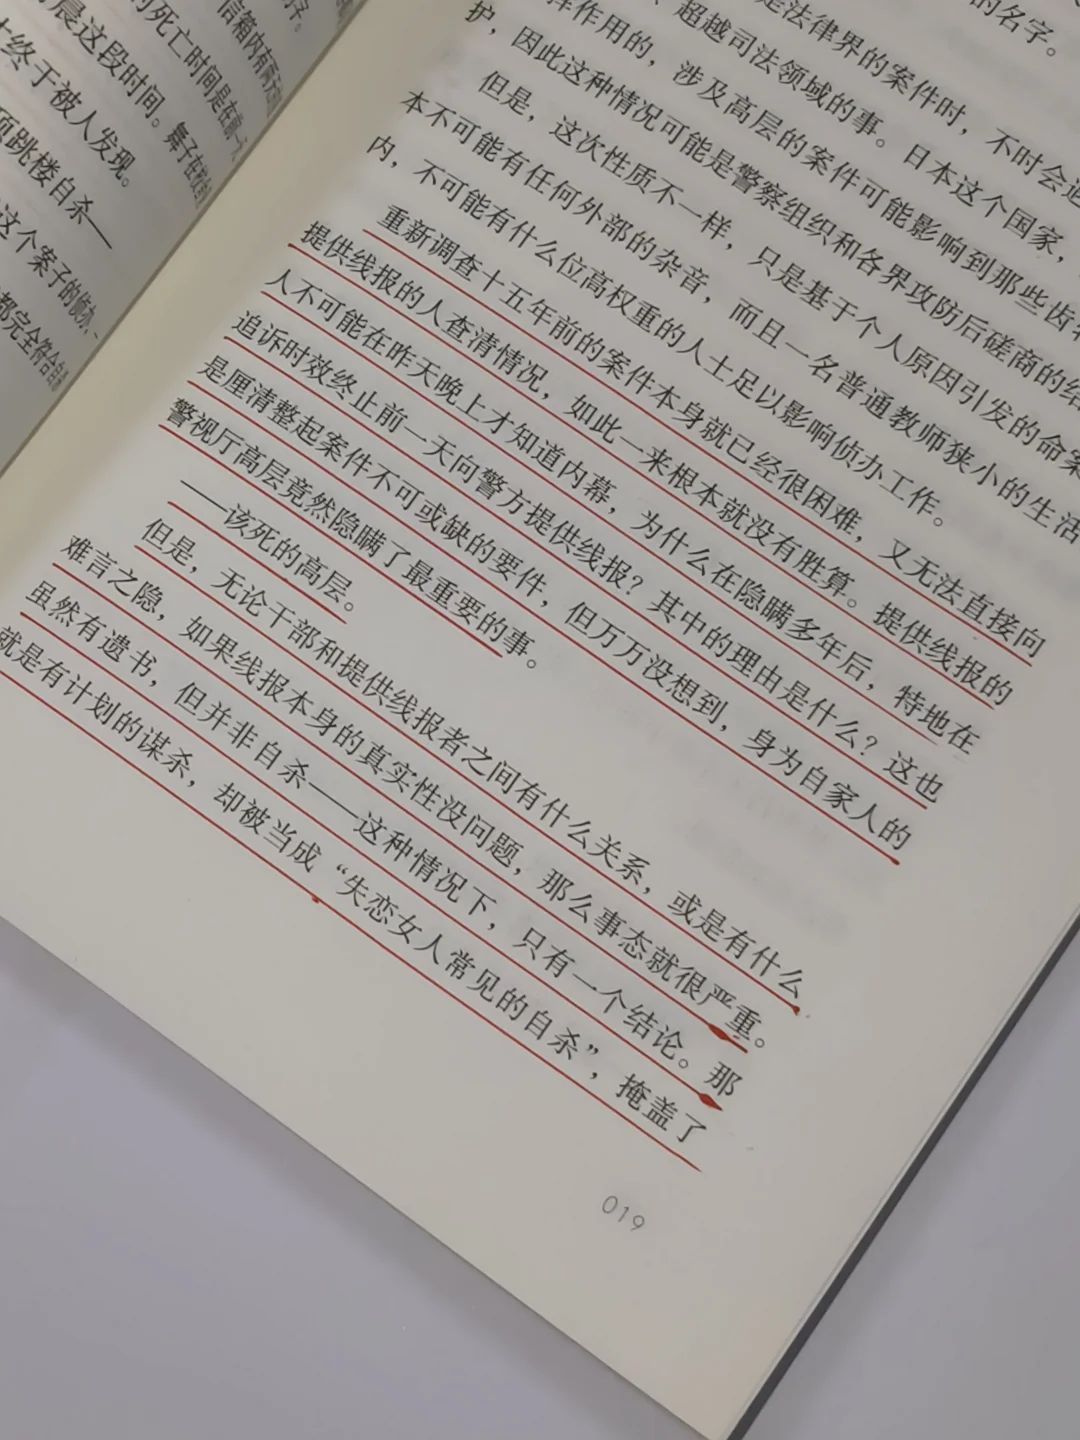 子。
信箱内有两
的死亡时间是在前一
晨这段时间。舞子在校舍
才终于被人发现。
顶跳楼自杀——
这个案子的侦办、
都完全符合自杀
的名字。
是法律界的案件时，不时会
、超越司法领域的事。日本这个国家，
作用的，涉及高层的案件可能影响到那些齿轮
护，因此这种情况可能是警察组织和各界攻防后磋商的结
但是，这次性质不一样，只是基于个人原因引发的命案
本不可能有任何外部的杂音，而且一名普通教师狭小的生活
内，不可能有什么位高权重的人士足以影响侦办工作。
重新调查十五年前的案件本身就已经很困难，又无法直接向
提供线报的人查清情况，如此一来根本就没有胜算。提供线报的
人不可能在昨天晚上才知道内幕，为什么在隐瞒多年后，特地在
追诉时效终止前一天向警方提供线报？其中的理由是什么？这也
是厘清整起案件不可或缺的要件，但万万没想到，身为自家人的
警视厅高层竟然隐瞒了最重要的事。
——该死的高层。
但是，无论干部和提供线报者之间有什么关系，或是有什么
难言之隐，如果线报本身的真实性没问题，那么事态就很严重。
虽然有遗书，但并非自杀——这种情况下，只有一个结论。那
就是有计划的谋杀，却被当成“失恋女人常见的自杀”，掩盖了
019